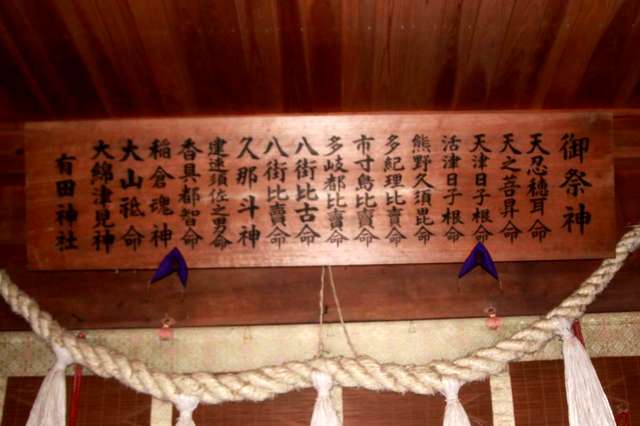 御祭神
天忍穂耳命
天之菩昇命
天津日子根命
活津日子根命
熊野久須毘命
多紀理比賣命
市寸島比賣命
多岐都比賣命
八街比古命
八街比賣命
久那斗神
建速須佐之男命
香具都智命
稲倉魂神
大山祗命
大綿津見神
有田神社